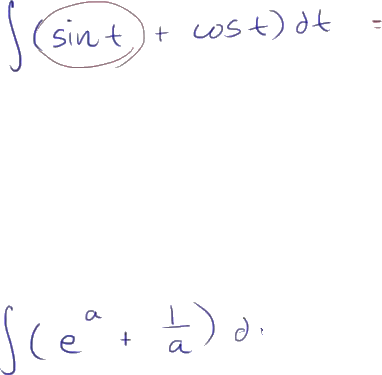 ∫(sin t + cos t) dt =
∫(e^a + 1/a) d